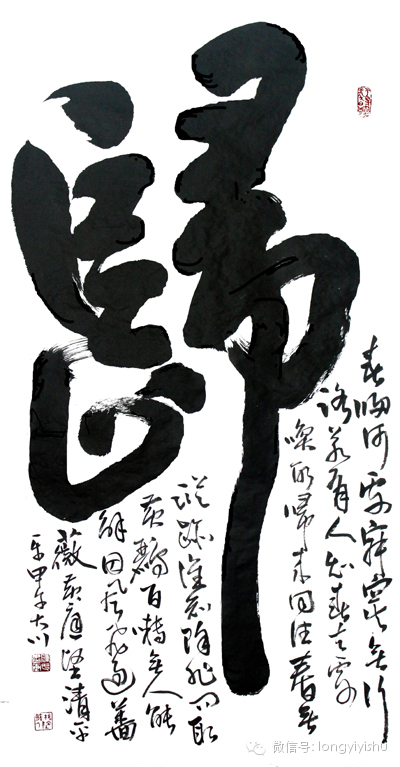 歸
春歸何處寂寞無行
路若有人知春去處
喚取歸來同住春無
蹤跡誰知除非問取
黃鸝百囀無人能
解因風飛過薔
薇黃庭堅清平
樂甲午大川
微信号: longyiyishu